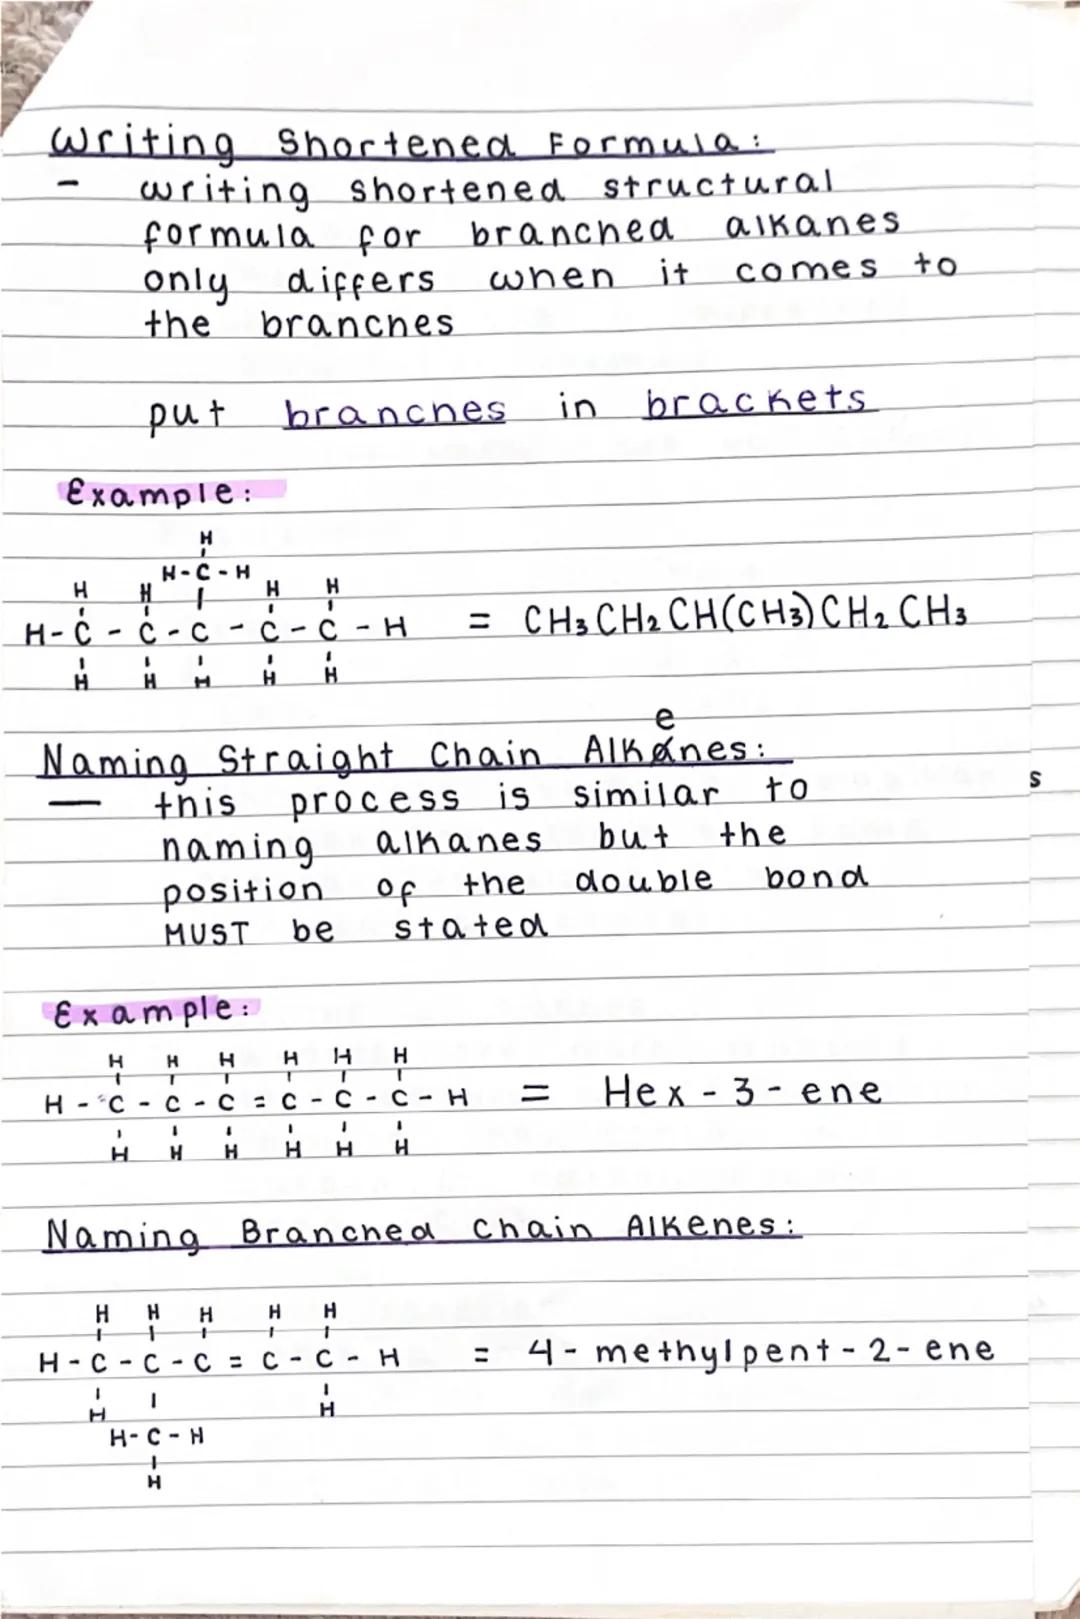 Writing Shortened Formula:
- writing shortened structural
formula for branched alkanes
only differs when it comes to
the branches
put branches in brackets
Example:
H
H-C-H
H H H H
H-C-C-C-C-C-H = CH₃CH₂CH(CH₃)CH₂CH₃
H H H H H
e
Naming Straight Chain Alkanes:
- this process is similar to
s
naming alkanes but the
position of the double bond
MUST be stated
Example:
H H H H H H
H-C-C-C=C-C-C-H = Hex-3-ene
H H H H H H
Naming Branched Chain Alkenes:
H H H H H
H-C-C-C=C-C-H = 4-methylpent-2-ene
H H
H-C-H
H